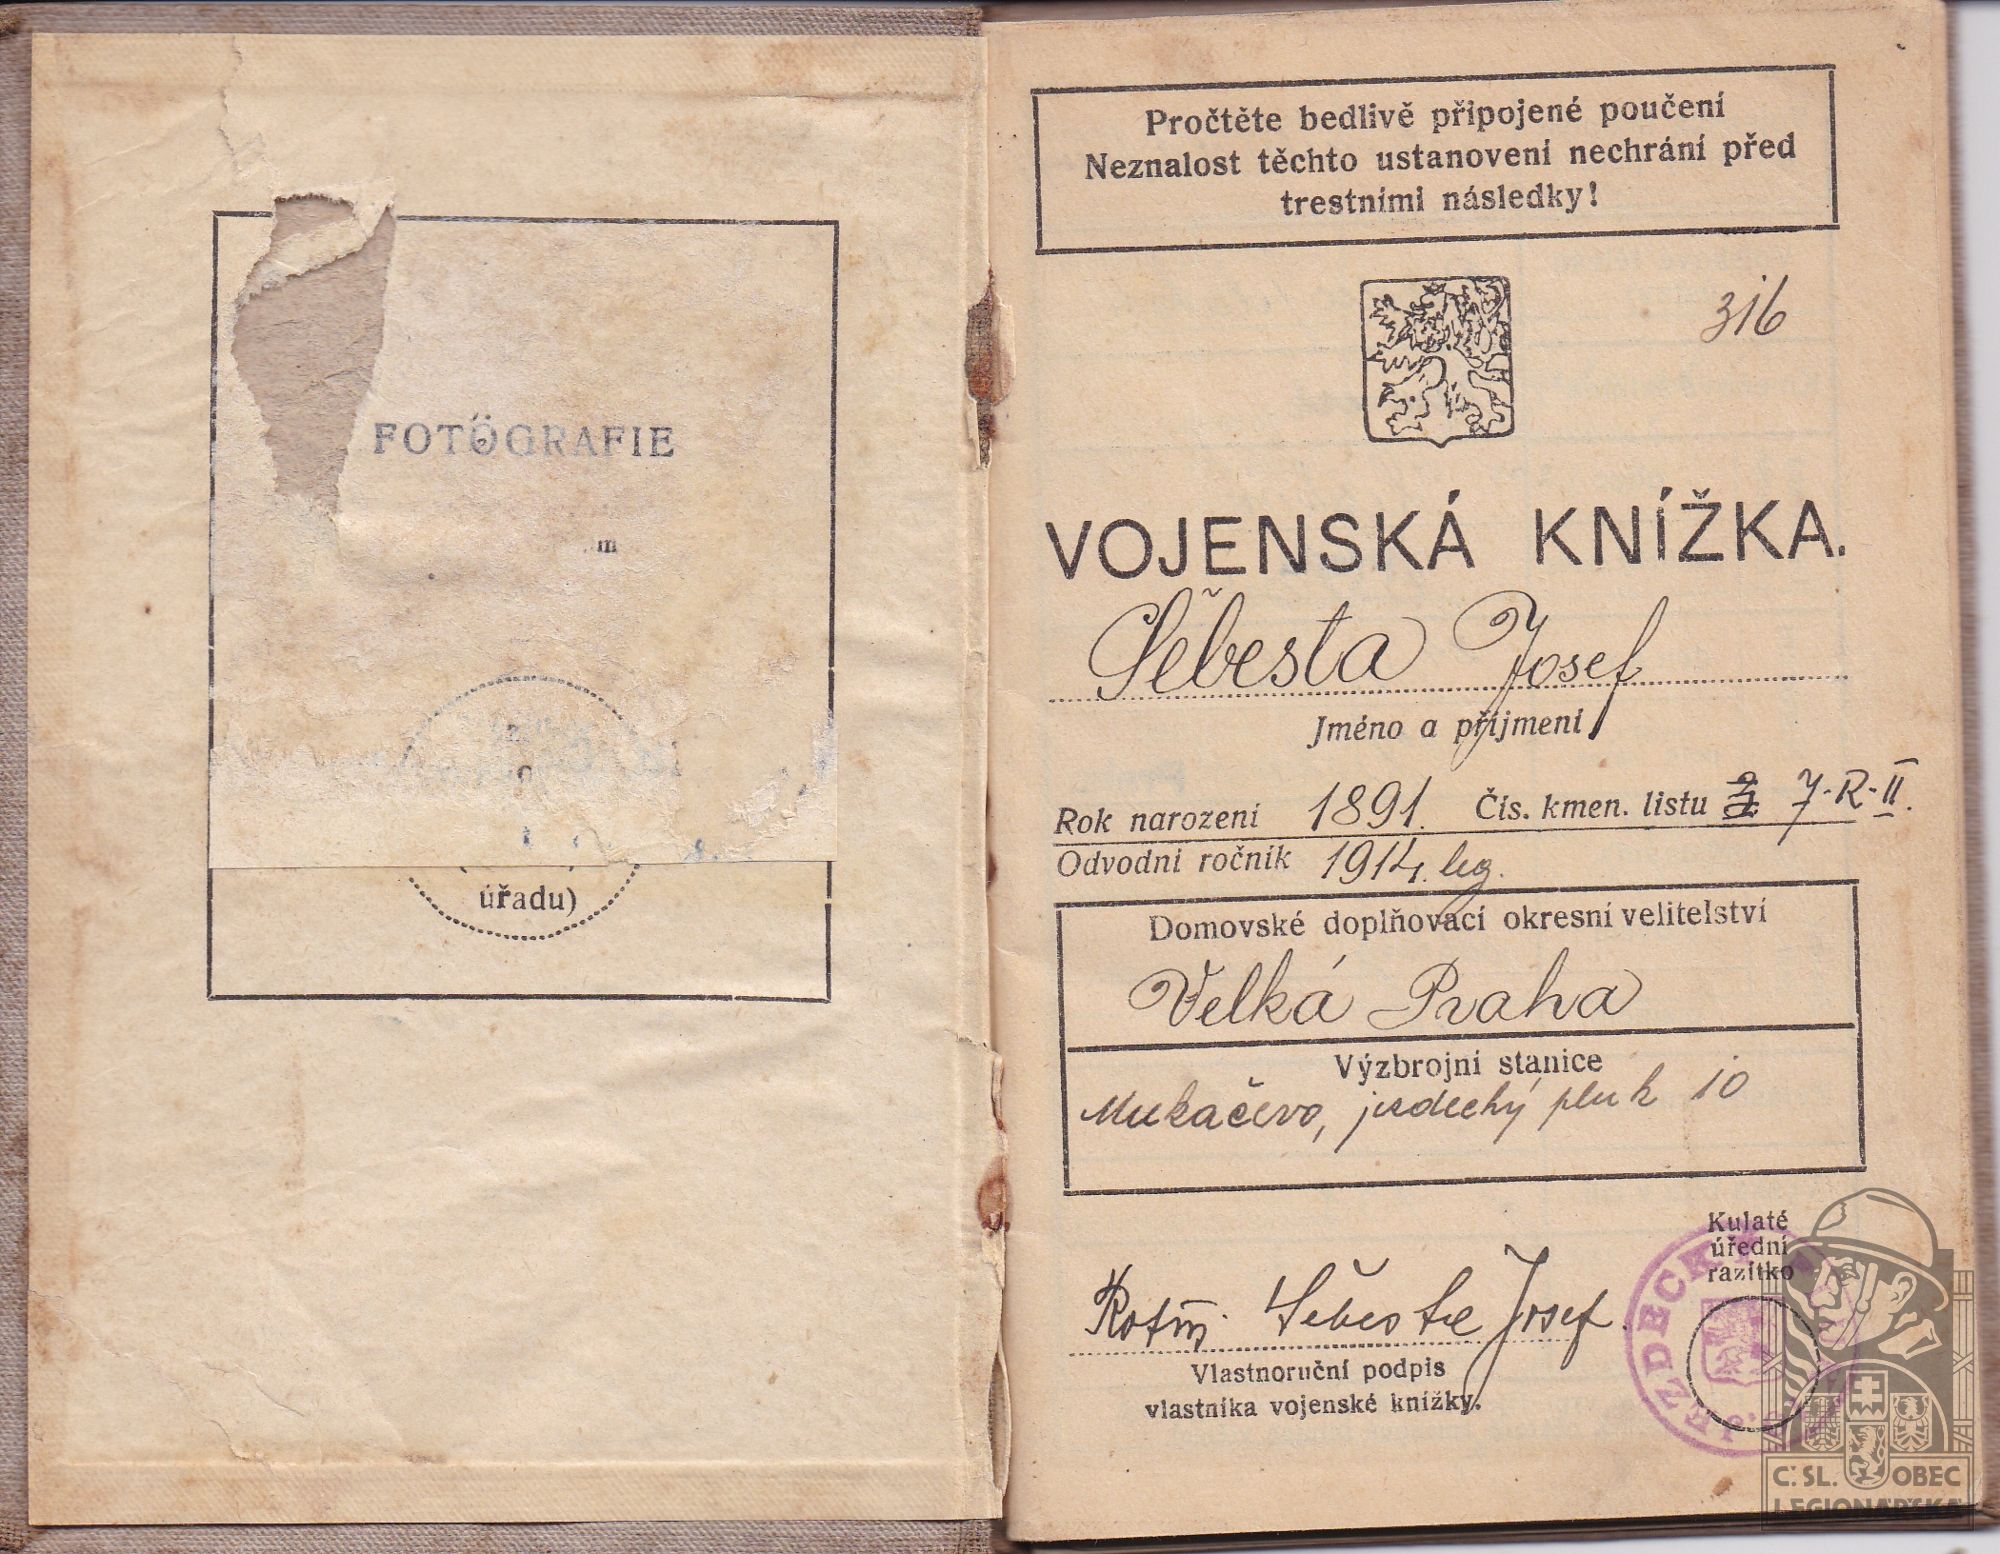 FOTOGRAFIE
m
úřadu)
Pročtěte bedlivě připojené poučení
Neznalost těchto ustanovení nechrání před
trestními následky!
316
VOJENSKÁ KNÍŽKA.
Šebesta Josef
Jméno a příjmení
Rok narození 1891. Čís. kmen. listu 7-R-II.
Odvodní ročník 1914. leg.
Domovské doplňovací okresní velitelství
Velká Praha
Výzbrojní stanice
Mukačevo, jezdecký pluk 10
Kulaté
úřední
razítko
Rotm. Šebesta Josef.
Vlastnoruční podpis
vlastníka vojenské knížky.
JEZDECK
Č. SL. OBEC
LEGIONÁŘSKÁ